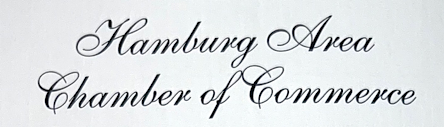 Hamburg Area
Chamber of Commerce